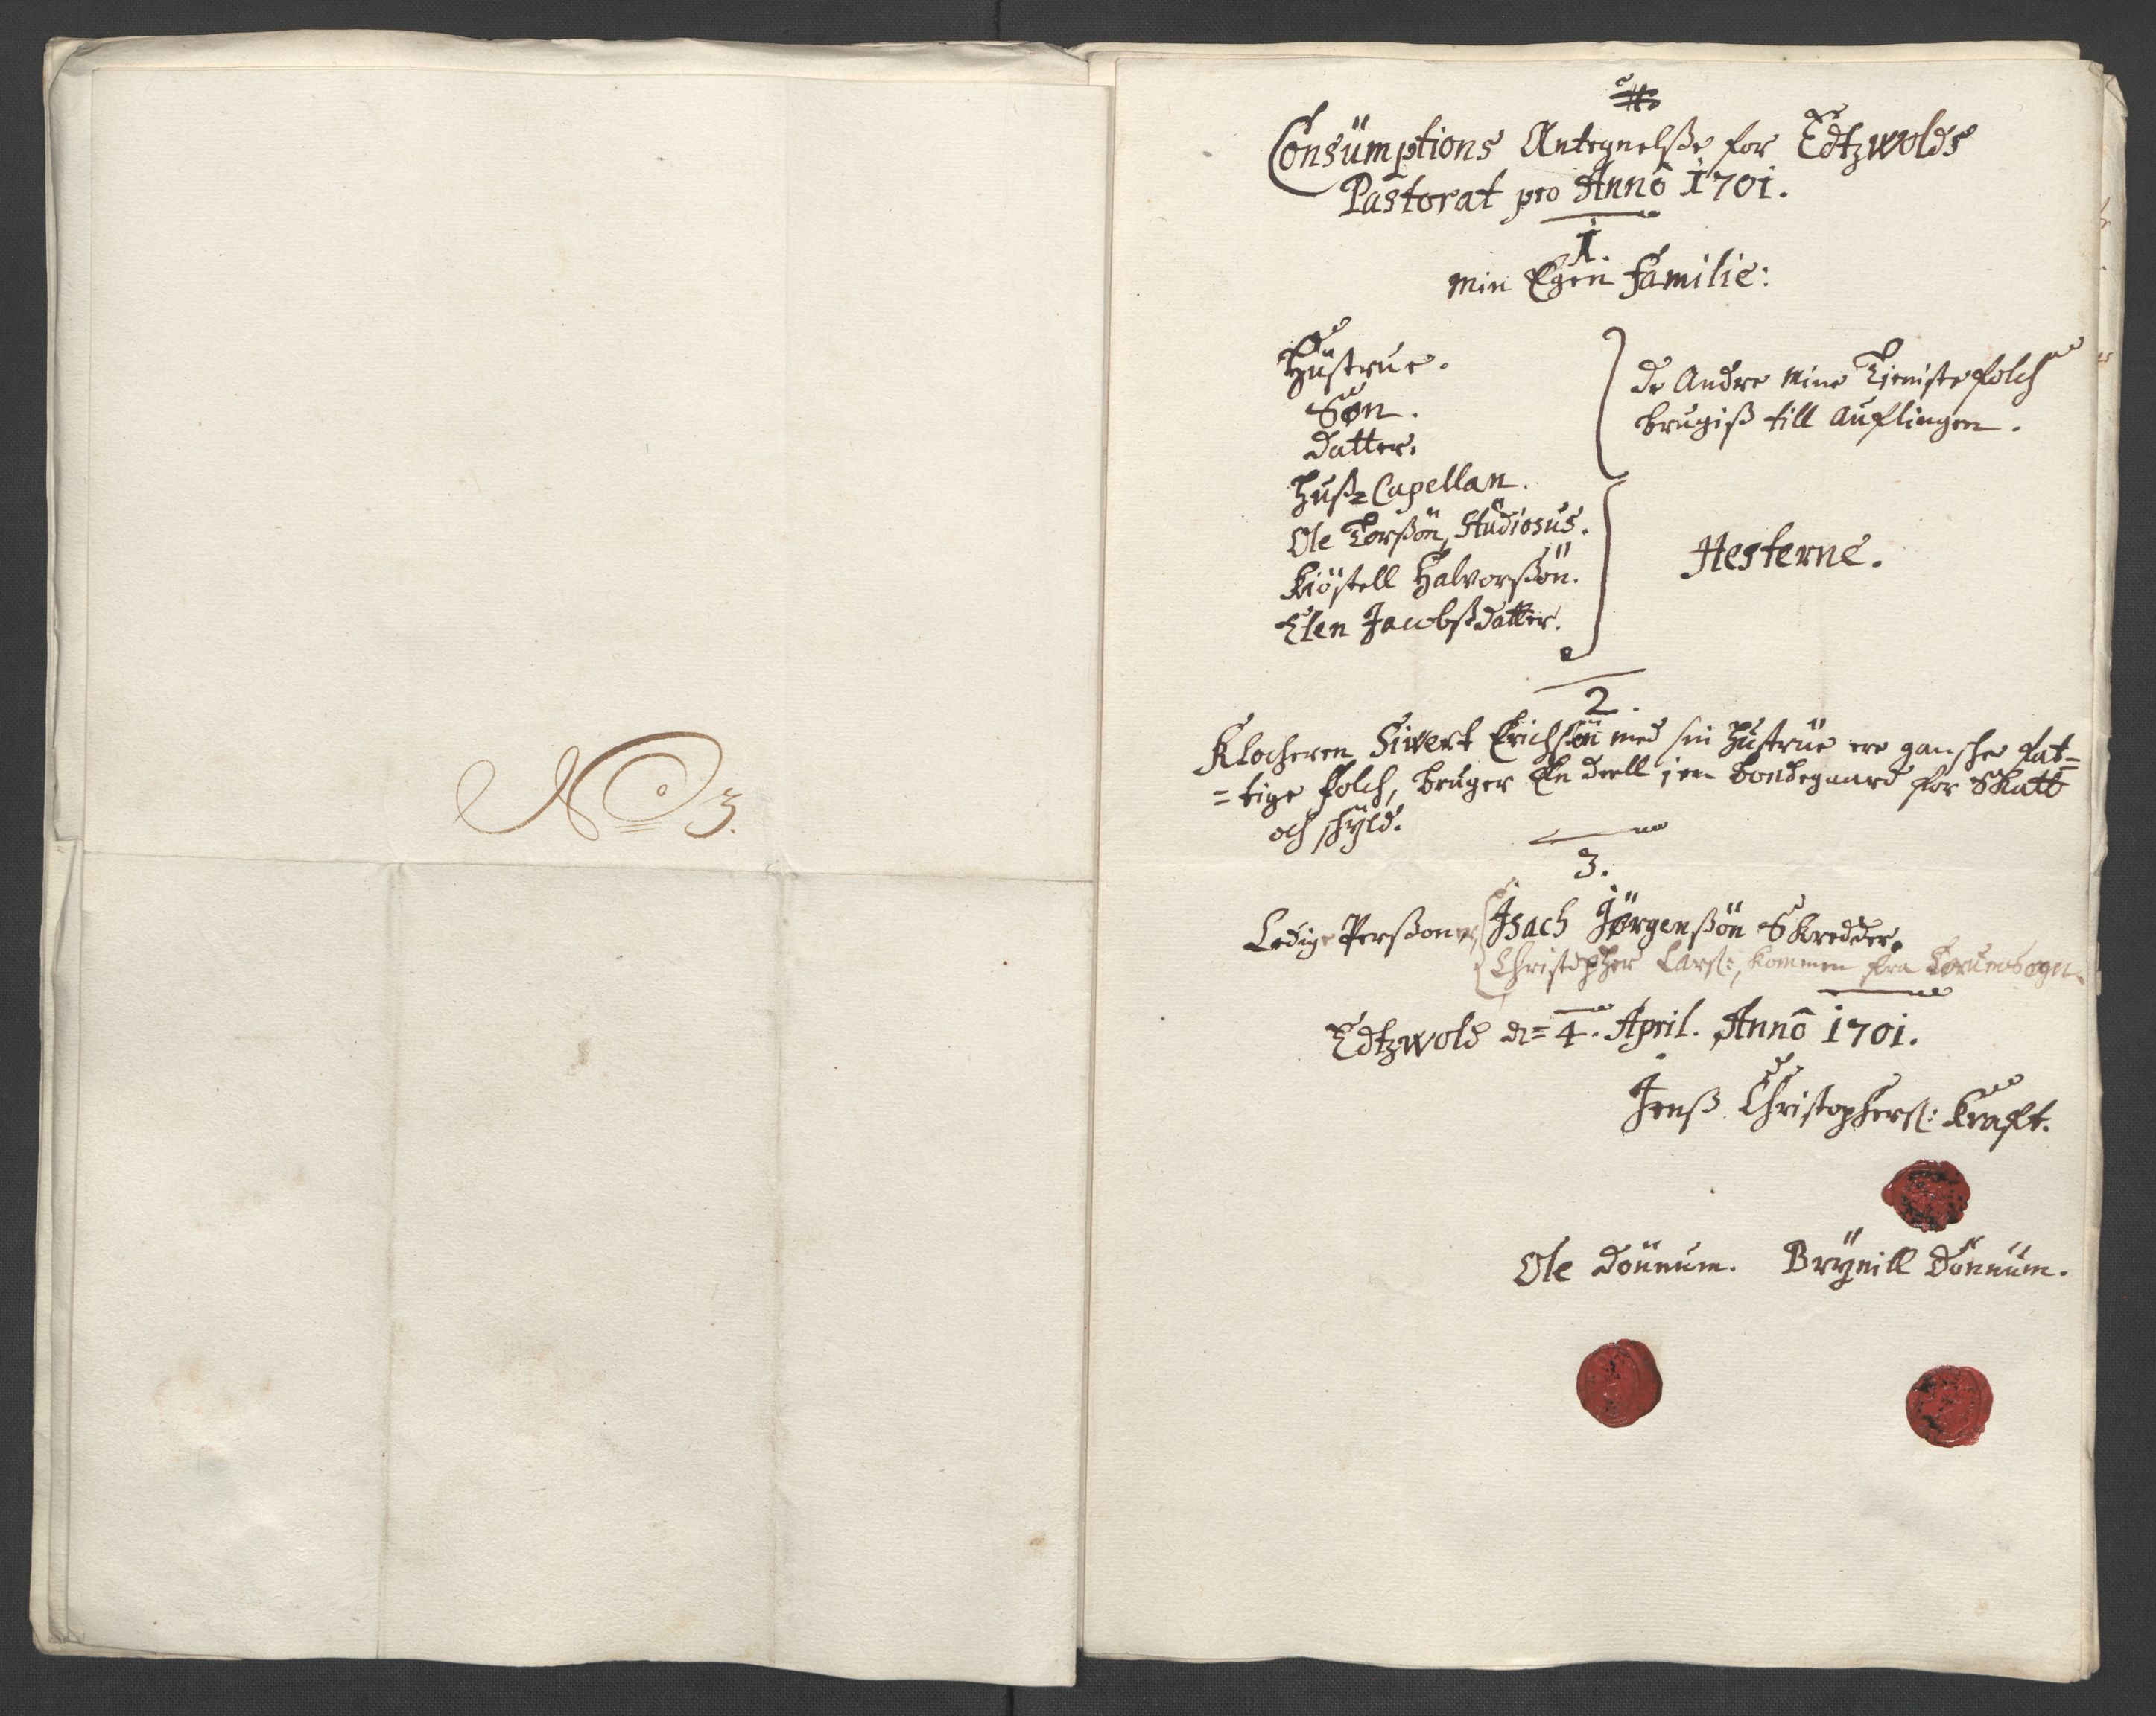 No 3.
Consümptions Antegnelsse for Edtzwolds
Pastorat pro Annô 1701.
1.
Min Egen Familie:
Hüstrue.
Søn.
Datter.
Huß=Capellan.
Ole Torßøn, Stüdiosus.
Kiöstell Halvorßön.
Elen Jacobßdatter.
De Andre Mine Tieniste folch
brugiß till Auflingen.
Hesterne.
2.
Klocheren Siwert Erichsön med sin Hüstrüe ere gansche fat=
=tige folch, bruger En deell i en bondegaard for Skatt
och schÿld.
3.
Ledige Perßoner, Isach Jörgenßön Skredder.
Christopher Larß:, kommen fra Sørumsogn.
Edtzwold d= 4. April. Annô 1701.
Jenß Christopherß: Kraft.
Ole Dönnum. Brÿnill Dönnüm.